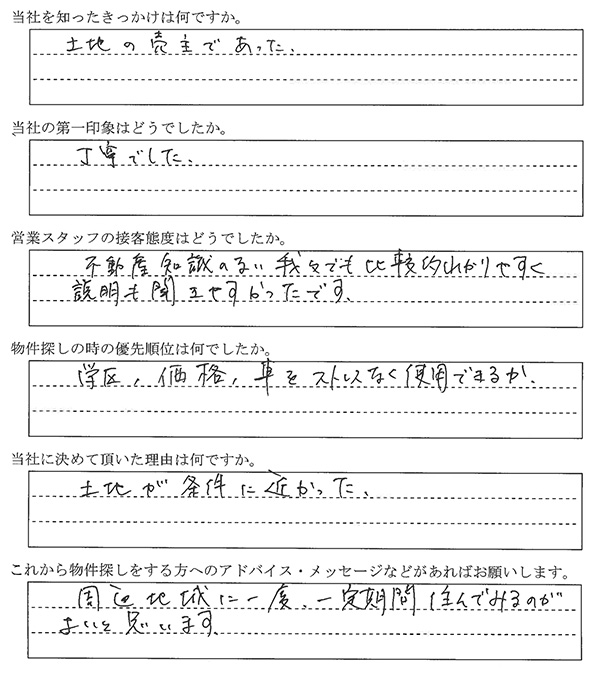 当社を知ったきっかけは何ですか。
土地の売主であった。
当社の第一印象はどうでしたか。
丁寧でした。
営業スタッフの接客態度はどうでしたか。
不動産知識のない我々でも比較的わかりやすく
説明も聞きやすかったです。
物件探しの時の優先順位は何でしたか。
学区、価格、車をストレスなく使用できるか。
当社に決めて頂いた理由は何ですか。
土地が条件に近かった。
これから物件探しをする方へのアドバイス・メッセージなどがあればお願いします。
周辺地域に一度、一定期間住んでみるのが
よいと思います。